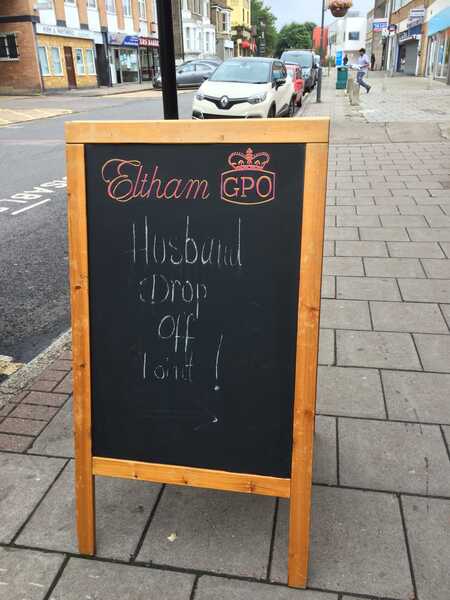 Eltham GPO
Husband
Drop
Off
Point !